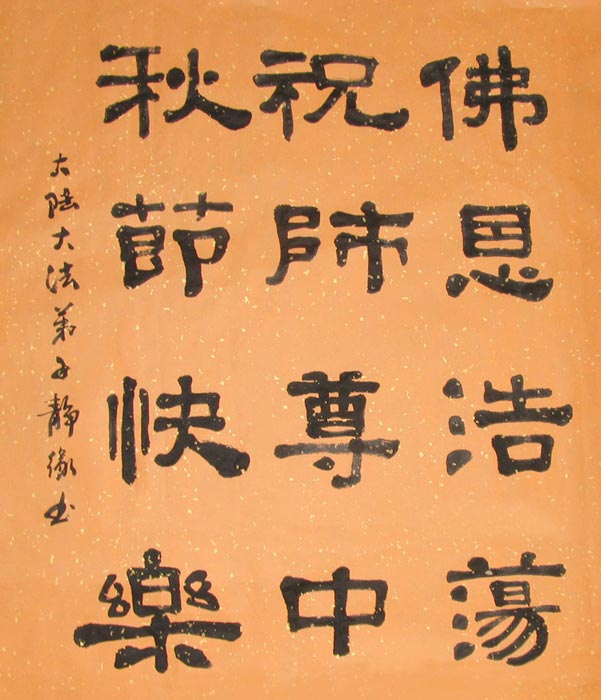 佛恩浩蕩
祝師尊中
秋節快樂
大陆大法弟子靜緣书